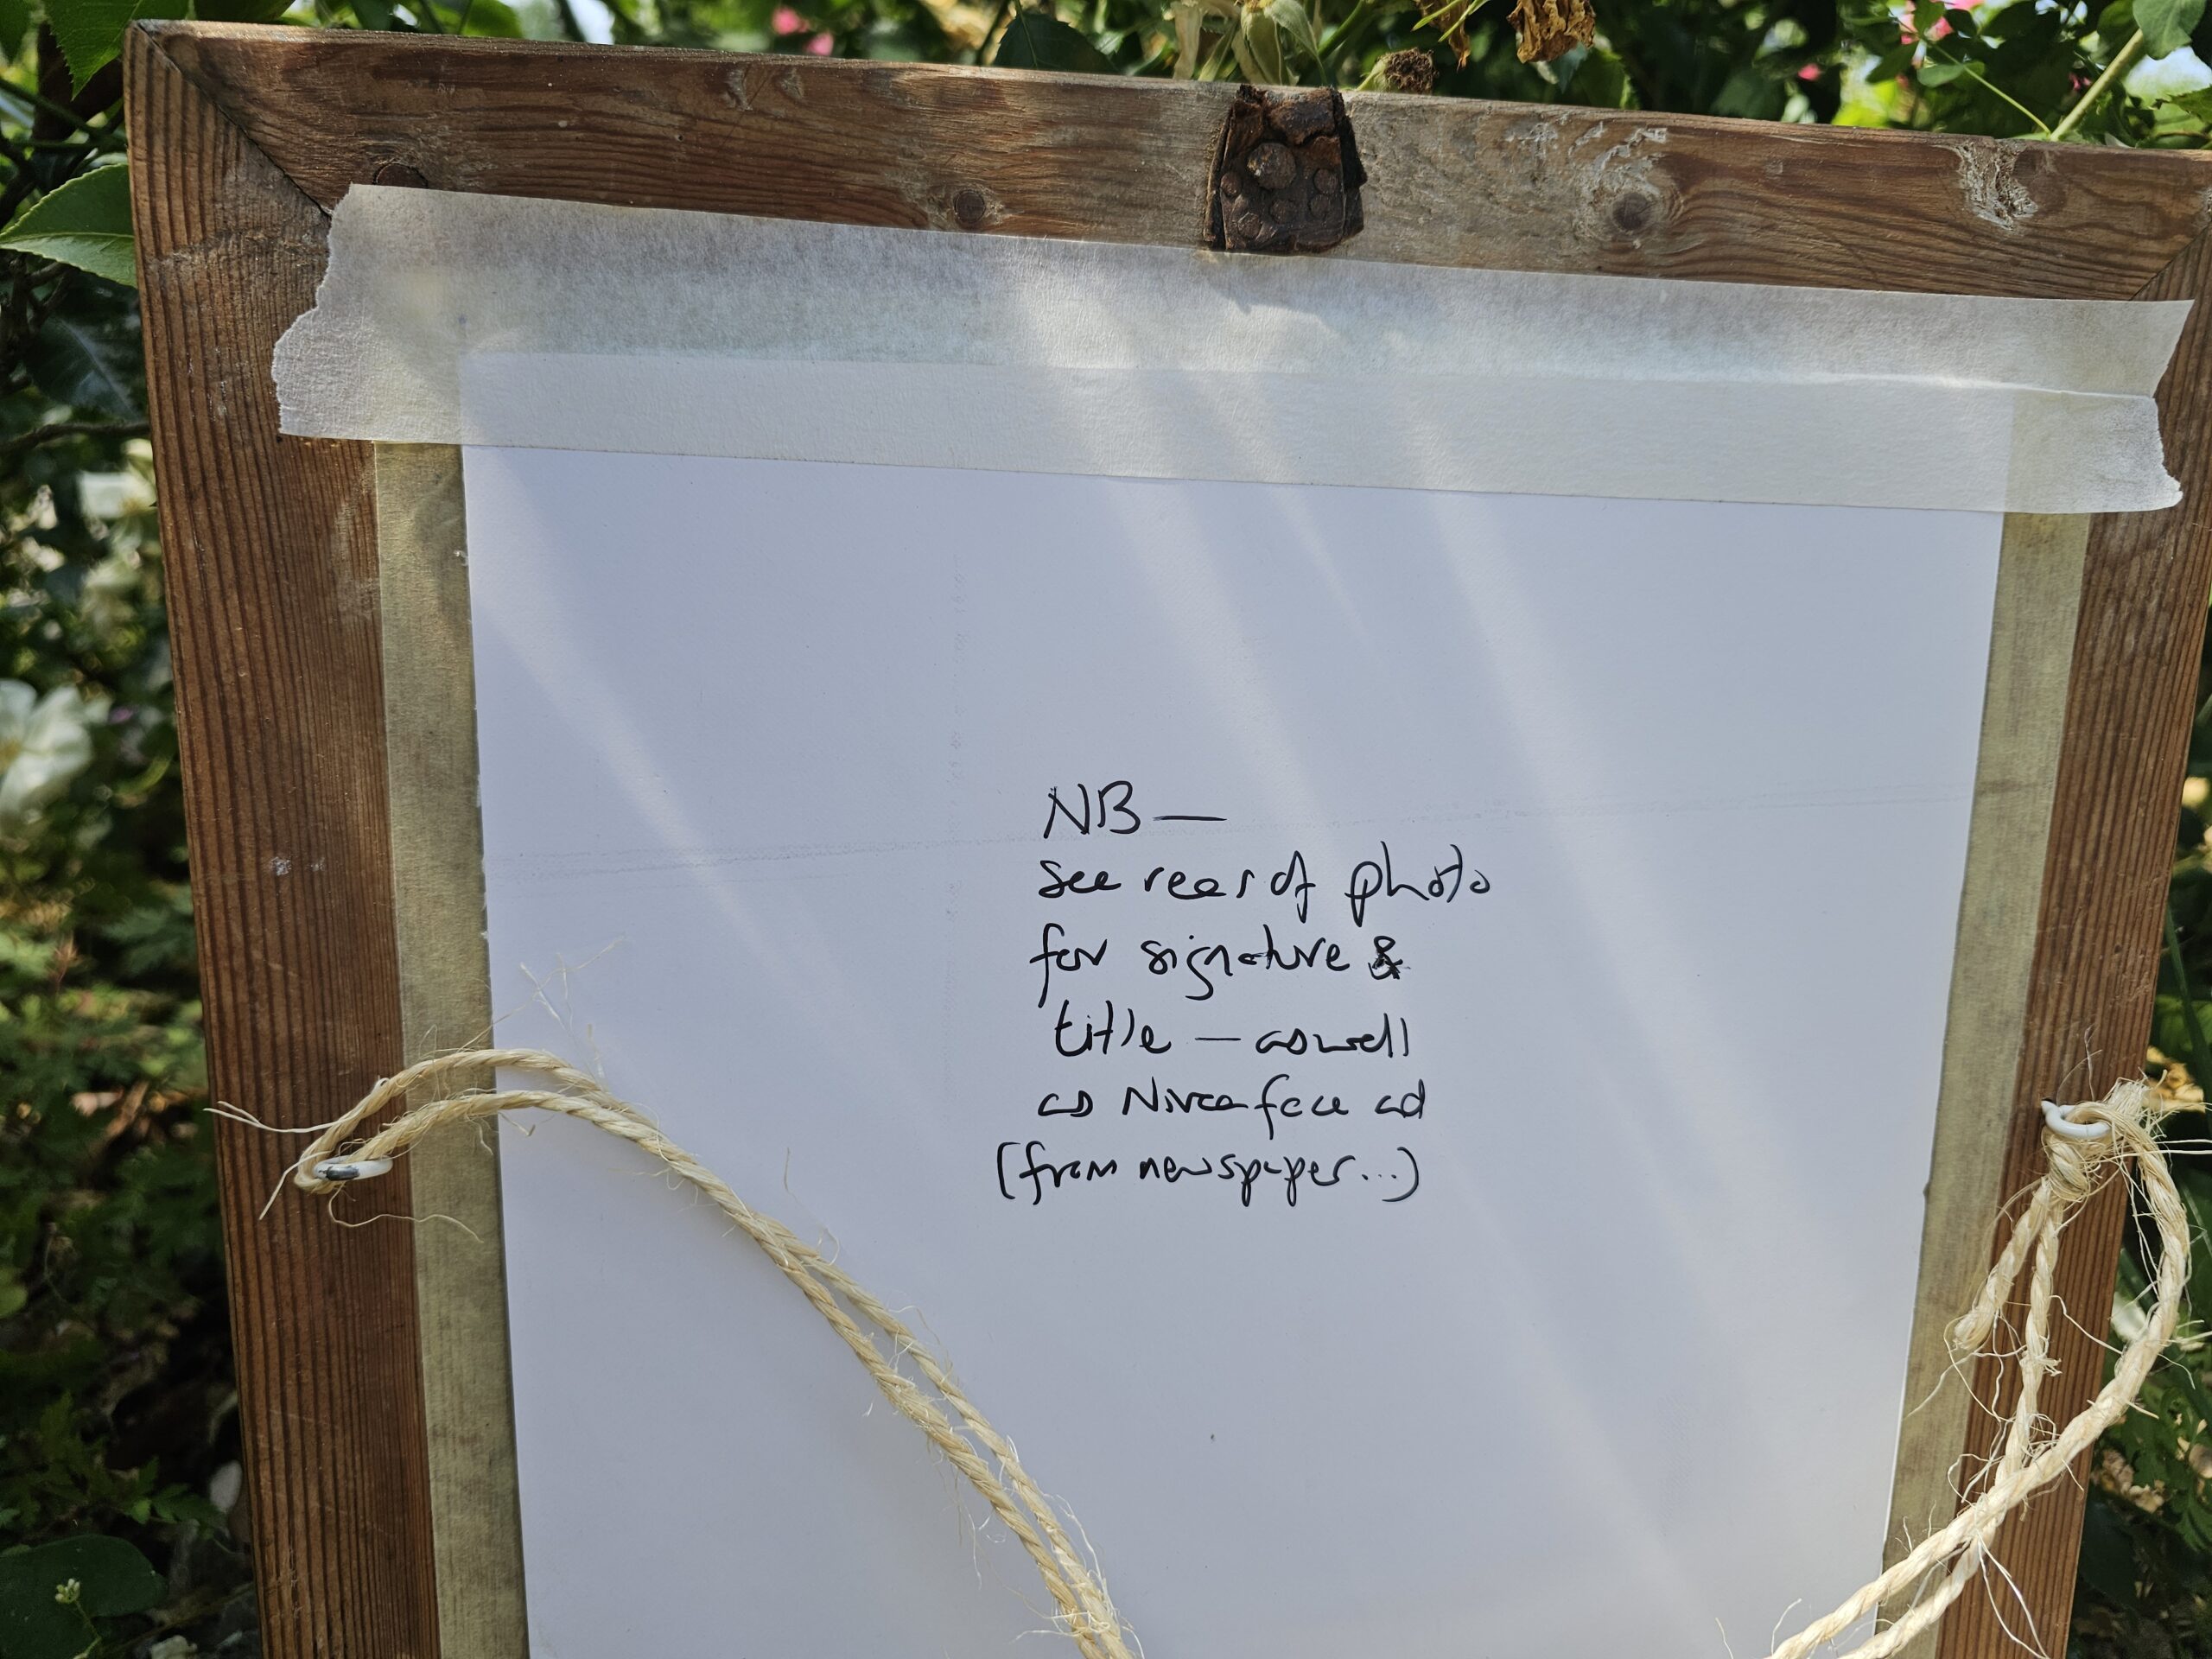 NB —
see rear of photo
for signature &
title — aswell
as Nivea face ad
(from newspaper...)